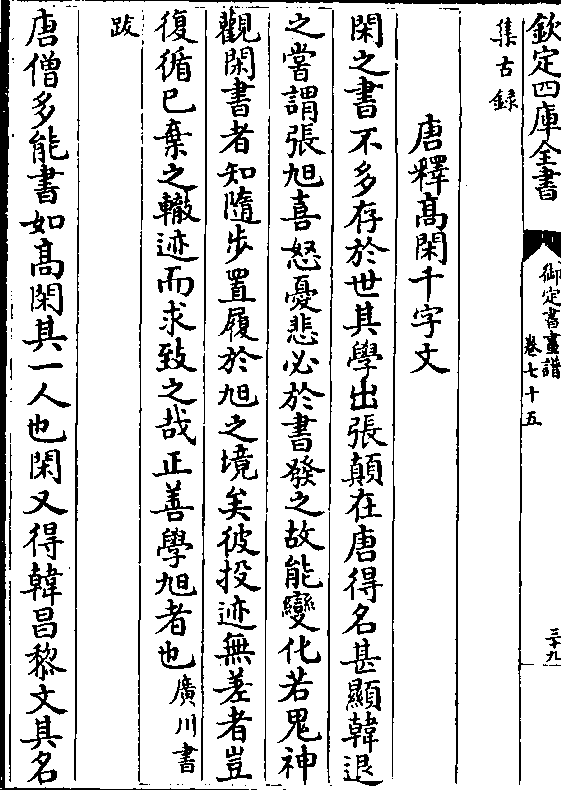 欽定四庫全書
御定書畫譜
卷七十五
三十九
集古錄
唐釋高閑千字文
閑之書不多存於世其學出張顛在唐得名甚顯韓退
之嘗謂張旭喜怒憂悲必於書發之故能變化若鬼神
觀閑書者知隨步置履於旭之境矣彼投迹無差者豈
復循已棄之轍迹而求致之哉正善學旭者也廣川書
跋
唐僧多能書如高閑其一人也閑又得韓昌黎文其名